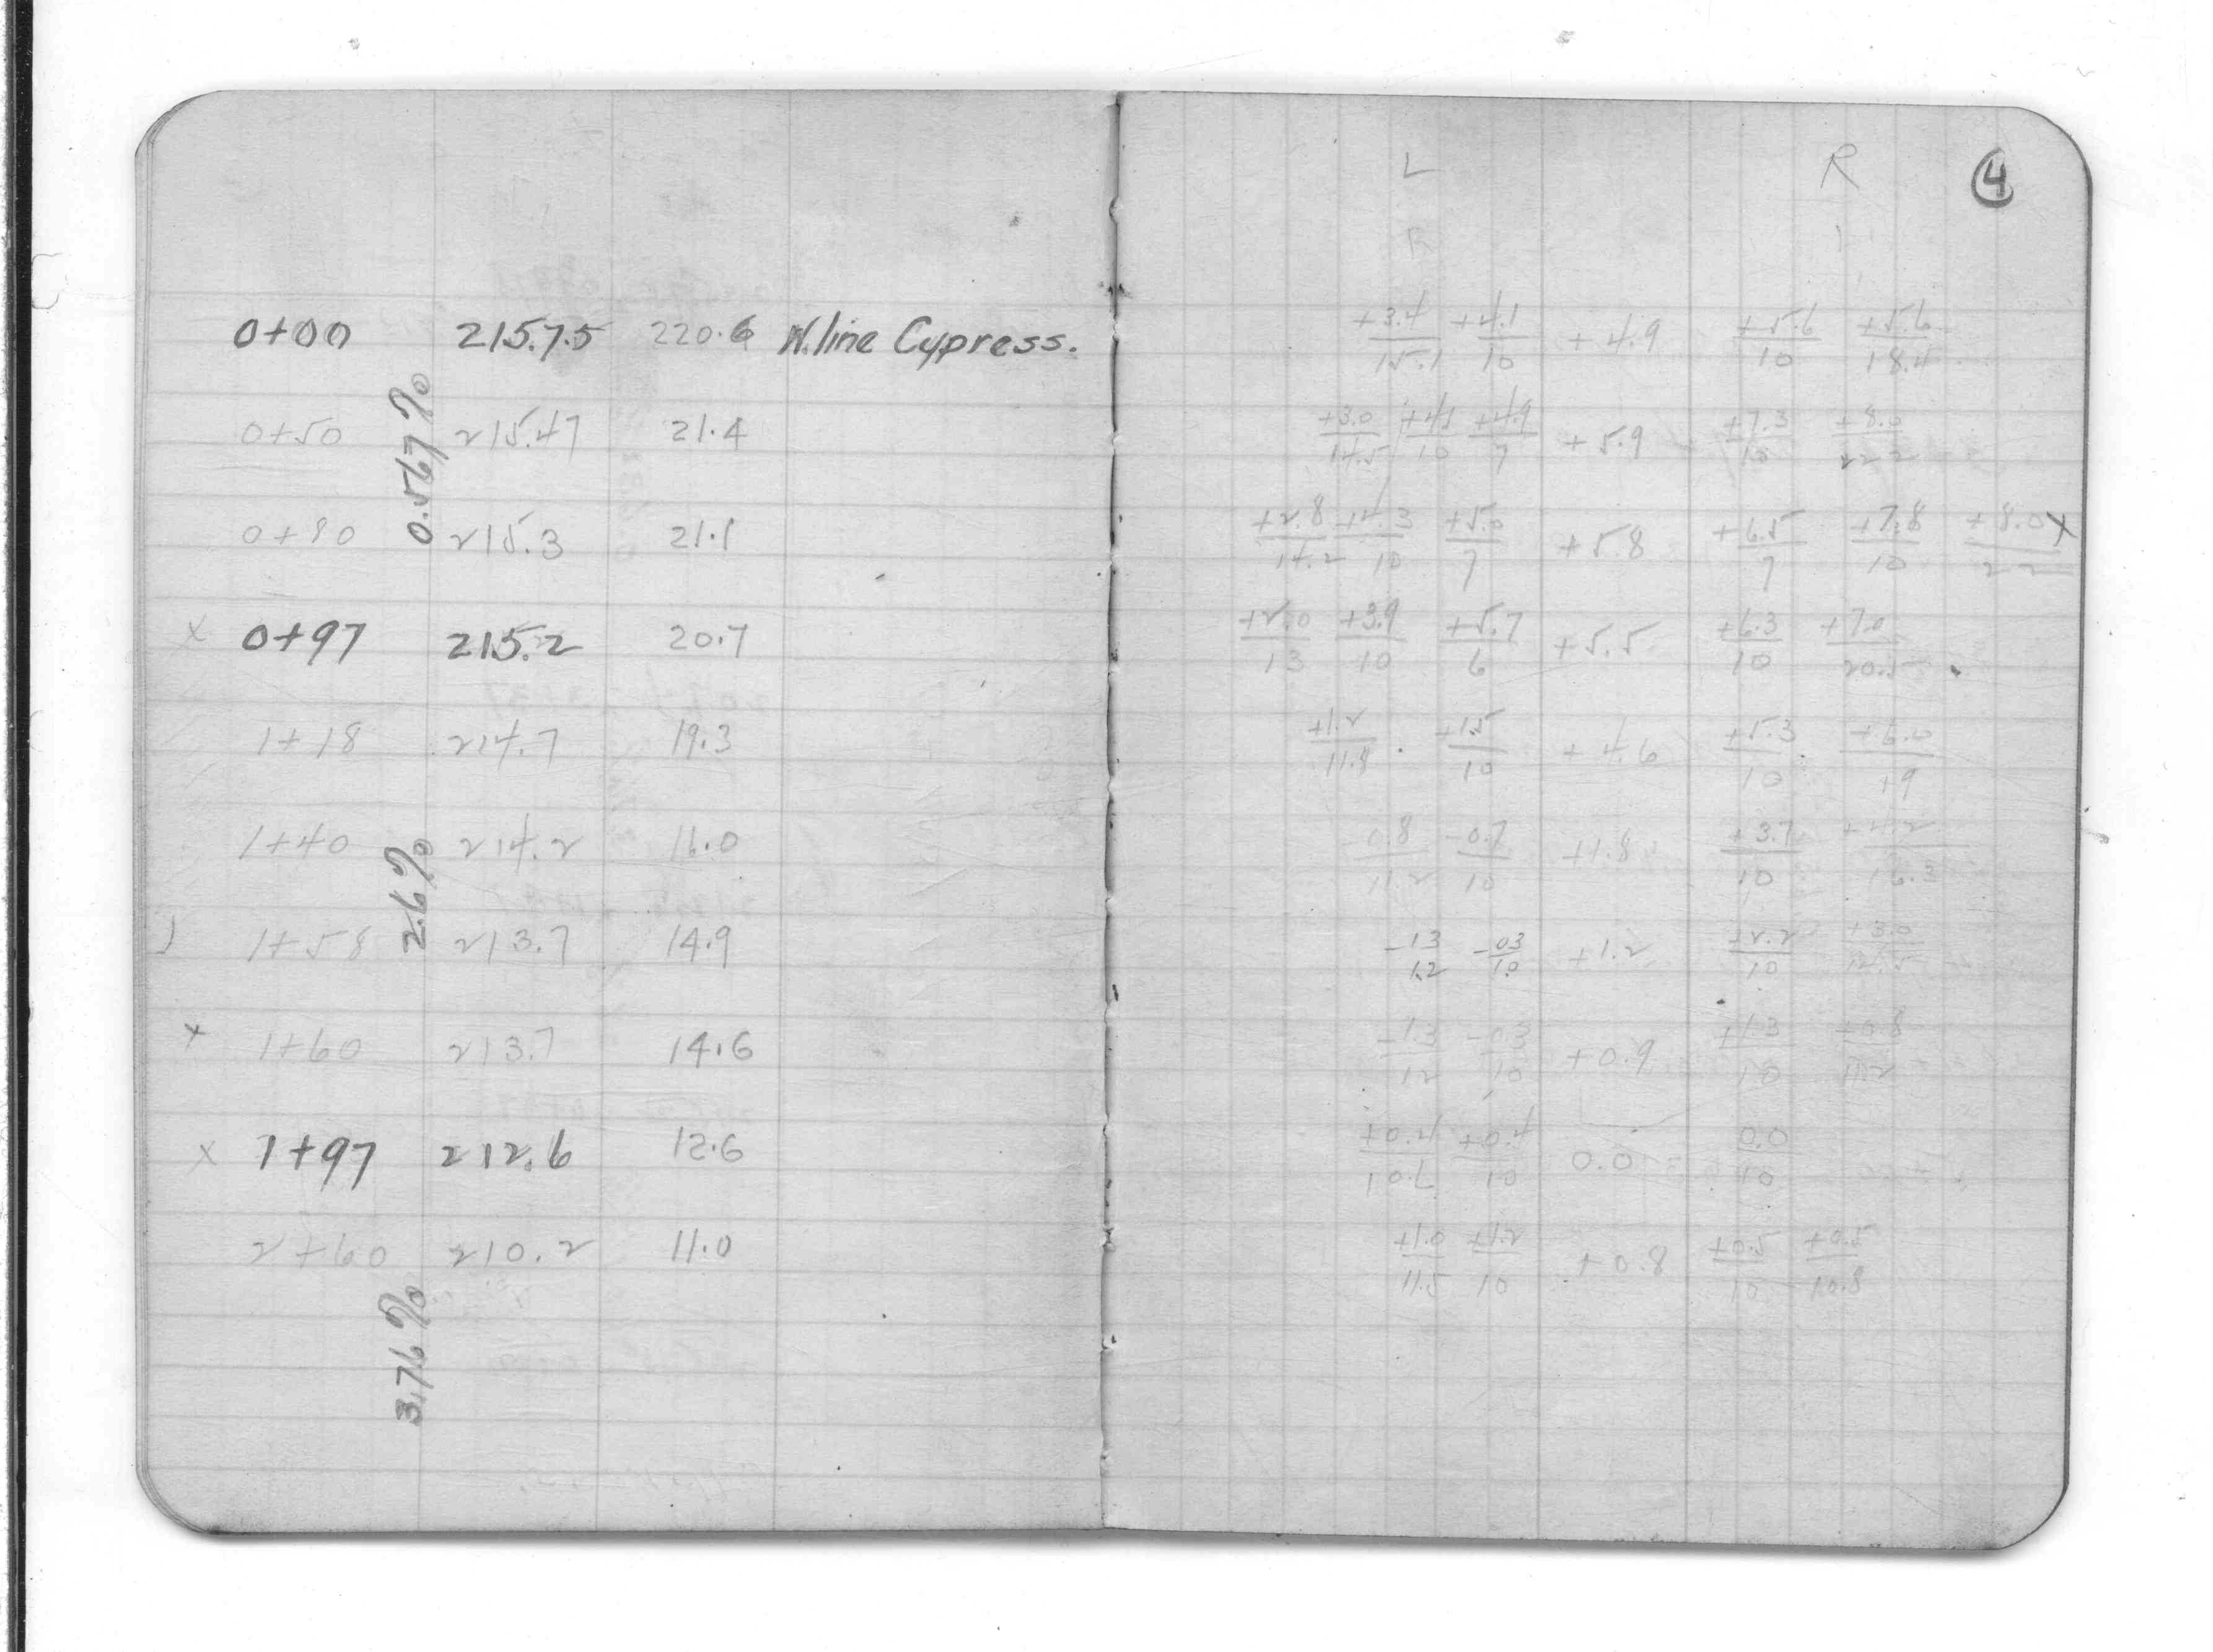 L R ④
R
0+00 215.75 220.6 N.line Cypress. +3.4/15.1 +4.1/10 +4.9 +5.6/10 +5.6/18.4
0.567%
0+50 215.47 21.4 +3.0/14.5 +4.1/10 +4.9/7 +5.9 +7.3/10 +8.0/22.2
0+80 215.3 21.1 +2.8/14.2 +4.3/10 +5.0/7 +5.8 +6.5/7 +7.8/10 +8.0/22 x
x 0+97 215.2 20.7 +2.0/13 +3.9/10 +5.7/6 +5.5 +6.3/10 +7.0/20.5
1+18 214.7 19.3 +1.2/11.8 +1.5/10 +4.6 +5.3/10 +6.0/19
1+40 214.2 16.0 -0.8/11.2 -0.7/10 +1.8 +3.7/10 +4.2/16.3
2.6%
1+58 213.7 14.9 -1.3/12 -0.3/10 +1.2 +2.2/10 +3.0/12.5
x 1+60 213.7 14.6 -1.3/12 -0.3/10 +0.9 +1.3/10 +0.8
x 1+97 212.6 12.6 +0.4/10.6 +0.4/10 0.0 0.0/10
2+60 210.2 11.0 +1.0/11.5 +1.2/10 +0.8 +0.5/10 +0.5/10.8
3.76%